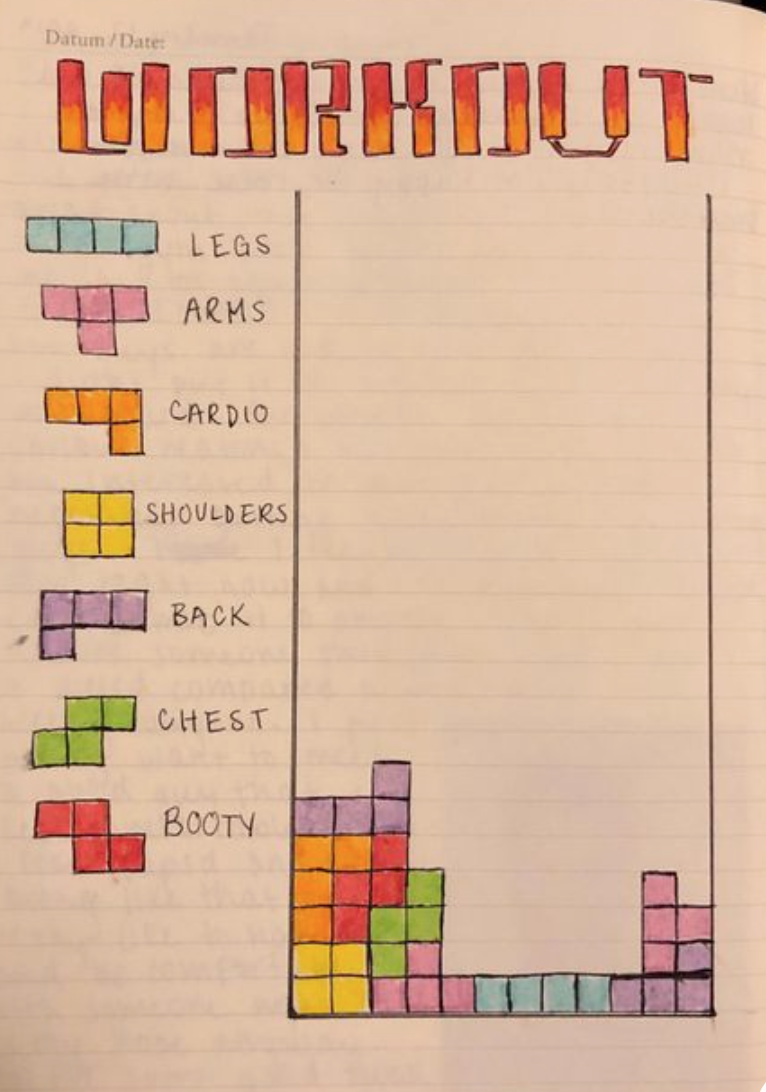 Datum / Date:
WORKOUT
LEGS
ARMS
CARDIO
SHOULDERS
BACK
CHEST
BOOTY